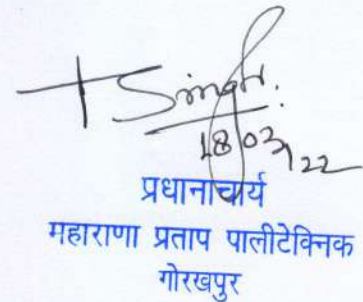 Singh.
18/02/22
प्रधानाचार्य
महाराणा प्रताप पालीटेक्निक
गोरखपुर